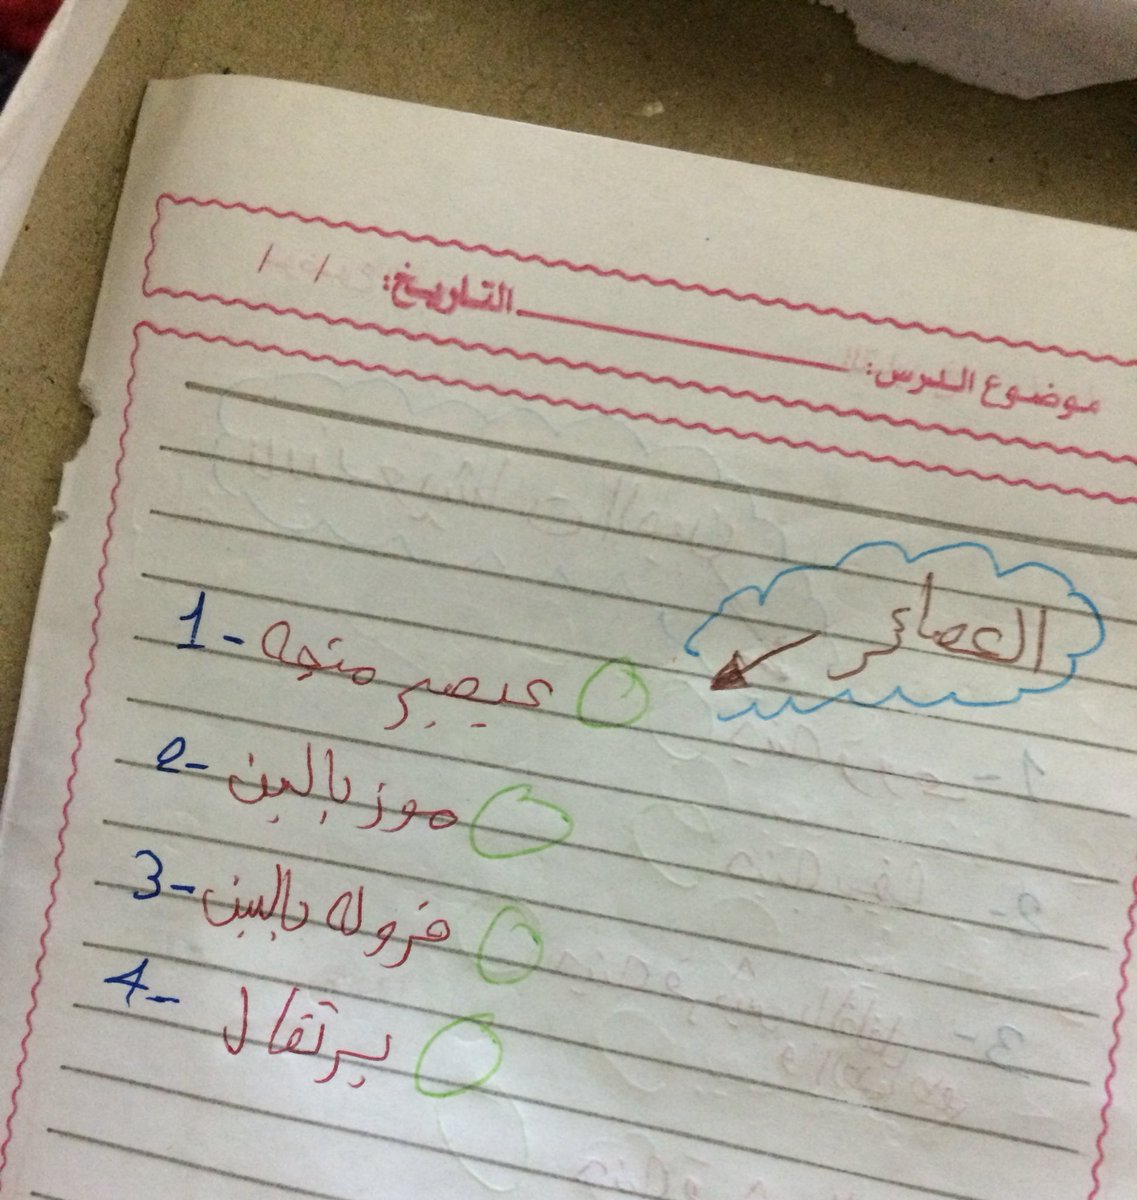 موضوع الدرس: التاريخ: / /
العصائر
1- عيصير منجه
2- موز بالبن
3- فروله بالبن
4- برتقال